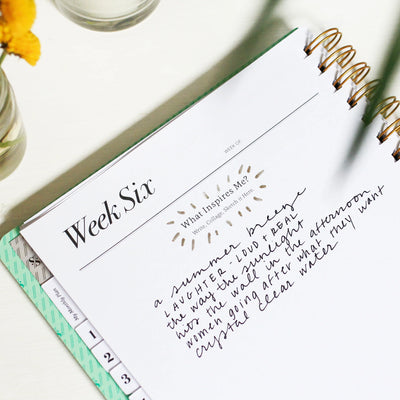 Week Six
WEEK OF
What Inspires Me?
Write, Collage, Sketch it Here.
a summer breeze
LAUGHTER LOUD & REAL
the way the sunlight
hits the wall in the afternoon
women going after what they want
crystal clear water
My Morning Mam
1
2
3